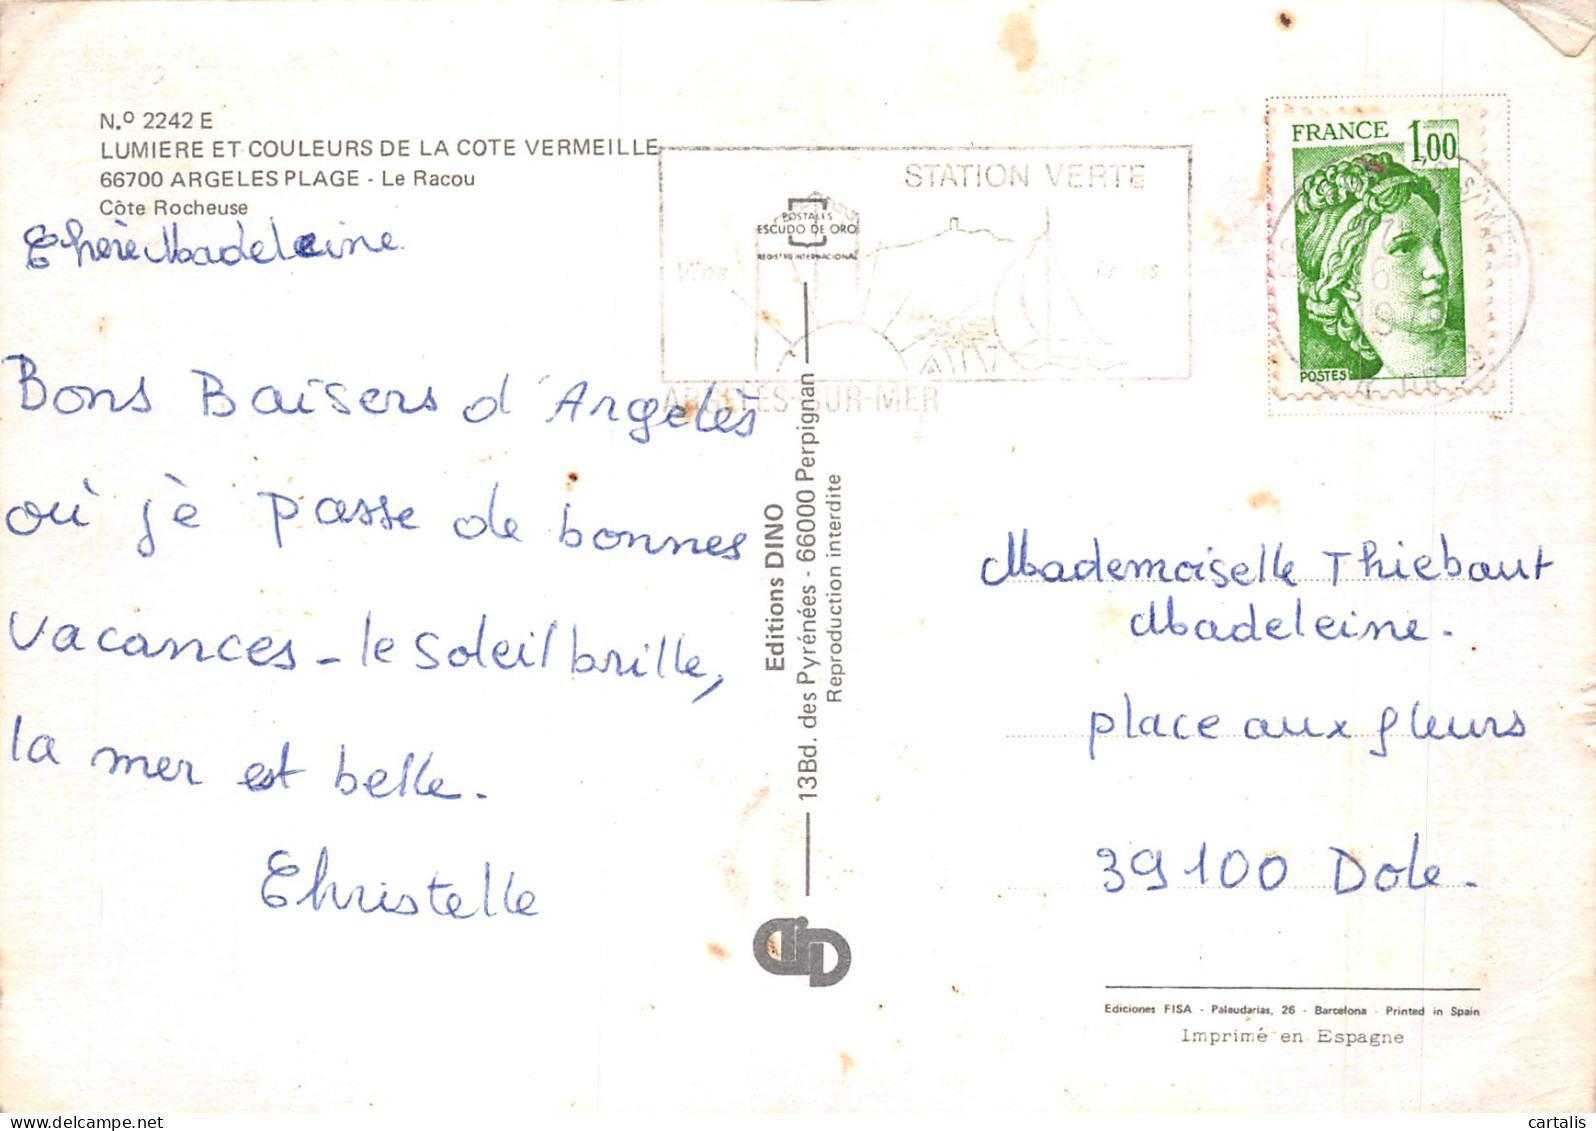 N.º 2242 E
LUMIERE ET COULEURS DE LA COTE VERMEILLE
66700 ARGELES PLAGE - Le Racou
Côte Rocheuse
Chère Madeleine
Bons Baisers d'Argelès
où jè passe de bonnes
vacances - le soleil brille,
la mer est belle.
Christelle
STATION VERTE
POSTALES
ESCUDO DE ORO
REGISTRO INTERNACIONAL
Vins
ARGELES-SUR-MER
FRANCE 1,00
POSTES
Editions DINO
13 Bd. des Pyrénées - 66000 Perpignan
Reproduction interdite
Mademoiselle Thiebaut
Madeleine.
place aux fleurs
39100 Dole.
Ediciones FISA - Palaudarias, 26 - Barcelona - Printed in Spain
Imprimé en Espagne
cartalis